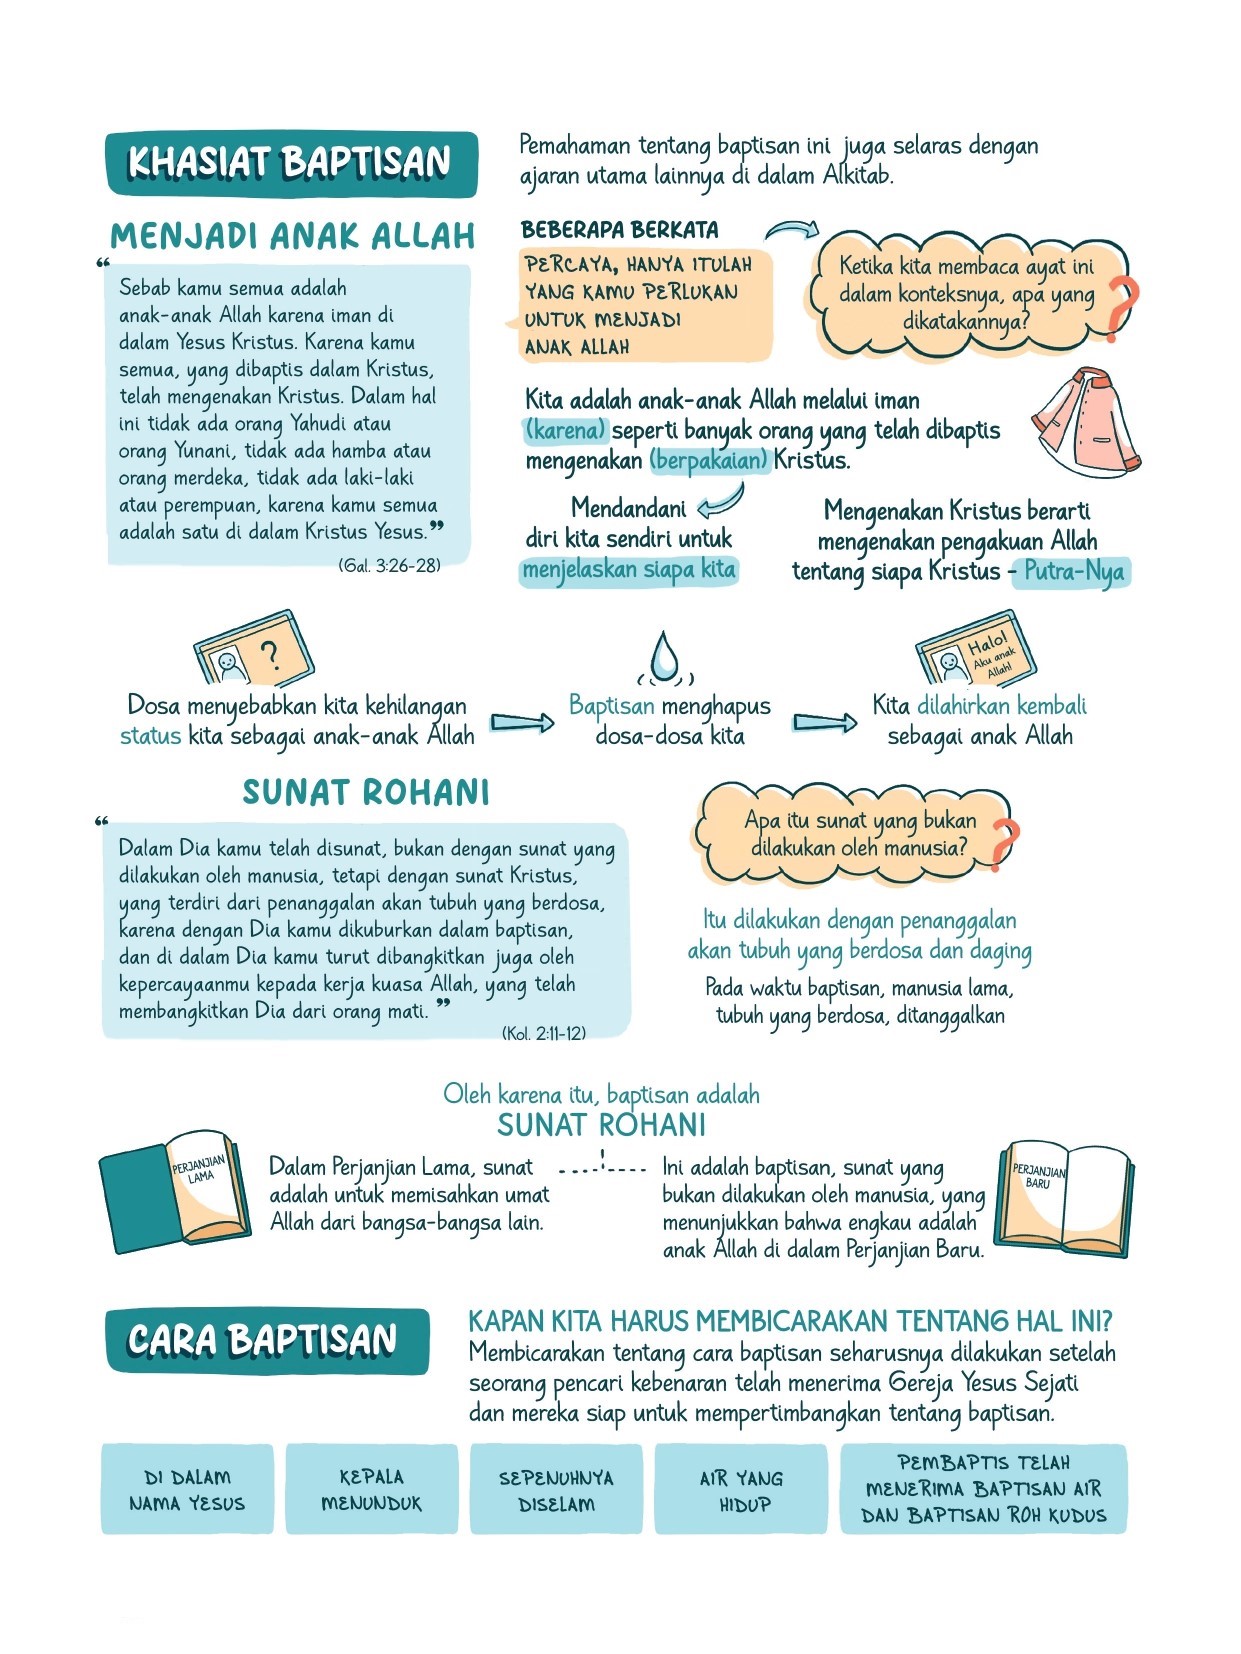 KHASIAT BAPTISAN
Pemahaman tentang baptisan ini juga selaras dengan
ajaran utama lainnya di dalam Alkitab.
MENJADI ANAK ALLAH
“
Sebab kamu semua adalah
anak-anak Allah karena iman di
dalam Yesus Kristus. Karena kamu
semua, yang dibaptis dalam Kristus,
telah mengenakan Kristus. Dalam hal
ini tidak ada orang Yahudi atau
orang Yunani, tidak ada hamba atau
orang merdeka, tidak ada laki-laki
atau perempuan, karena kamu semua
adalah satu di dalam Kristus Yesus.”
(Gal. 3:26-28)
BEBERAPA BERKATA
PERCAYA, HANYA ITULAH
YANG KAMU PERLUKAN
UNTUK MENJADI
ANAK ALLAH
Ketika kita membaca ayat ini
dalam konteksnya, apa yang
dikatakannya?
?
Kita adalah anak-anak Allah melalui iman
(karena) seperti banyak orang yang telah dibaptis
mengenakan (berpakaian) Kristus.
Mendandani
diri kita sendiri untuk
menjelaskan siapa kita
Mengenakan Kristus berarti
mengenakan pengakuan Allah
tentang siapa Kristus - Putra-Nya
?
Dosa menyebabkan kita kehilangan
status kita sebagai anak-anak Allah
Baptisan menghapus
dosa-dosa kita
Halo!
Aku anak
Allah!
Kita dilahirkan kembali
sebagai anak Allah
SUNAT ROHANI
“
Dalam Dia kamu telah disunat, bukan dengan sunat yang
dilakukan oleh manusia, tetapi dengan sunat Kristus,
yang terdiri dari penanggalan akan tubuh yang berdosa,
karena dengan Dia kamu dikuburkan dalam baptisan,
dan di dalam Dia kamu turut dibangkitkan juga oleh
kepercayaanmu kepada kerja kuasa Allah, yang telah
membangkitkan Dia dari orang mati. ”
(Kol. 2:11-12)
Apa itu sunat yang bukan
dilakukan oleh manusia?
?
Itu dilakukan dengan penanggalan
akan tubuh yang berdosa dan daging
Pada waktu baptisan, manusia lama,
tubuh yang berdosa, ditanggalkan
Oleh karena itu, baptisan adalah
SUNAT ROHANI
PERJANJIAN
LAMA
Dalam Perjanjian Lama, sunat
adalah untuk memisahkan umat
Allah dari bangsa-bangsa lain.
Ini adalah baptisan, sunat yang
bukan dilakukan oleh manusia, yang
menunjukkan bahwa engkau adalah
anak Allah di dalam Perjanjian Baru.
PERJANJIAN
BARU
CARA BAPTISAN
KAPAN KITA HARUS MEMBICARAKAN TENTANG HAL INI?
Membicarakan tentang cara baptisan seharusnya dilakukan setelah
seorang pencari kebenaran telah menerima Gereja Yesus Sejati
dan mereka siap untuk mempertimbangkan tentang baptisan.
DI DALAM
NAMA YESUS
KEPALA
MENUNDUK
SEPENUHNYA
DISELAM
AIR YANG
HIDUP
PEMBAPTIS TELAH
MENERIMA BAPTISAN AIR
DAN BAPTISAN ROH KUDUS